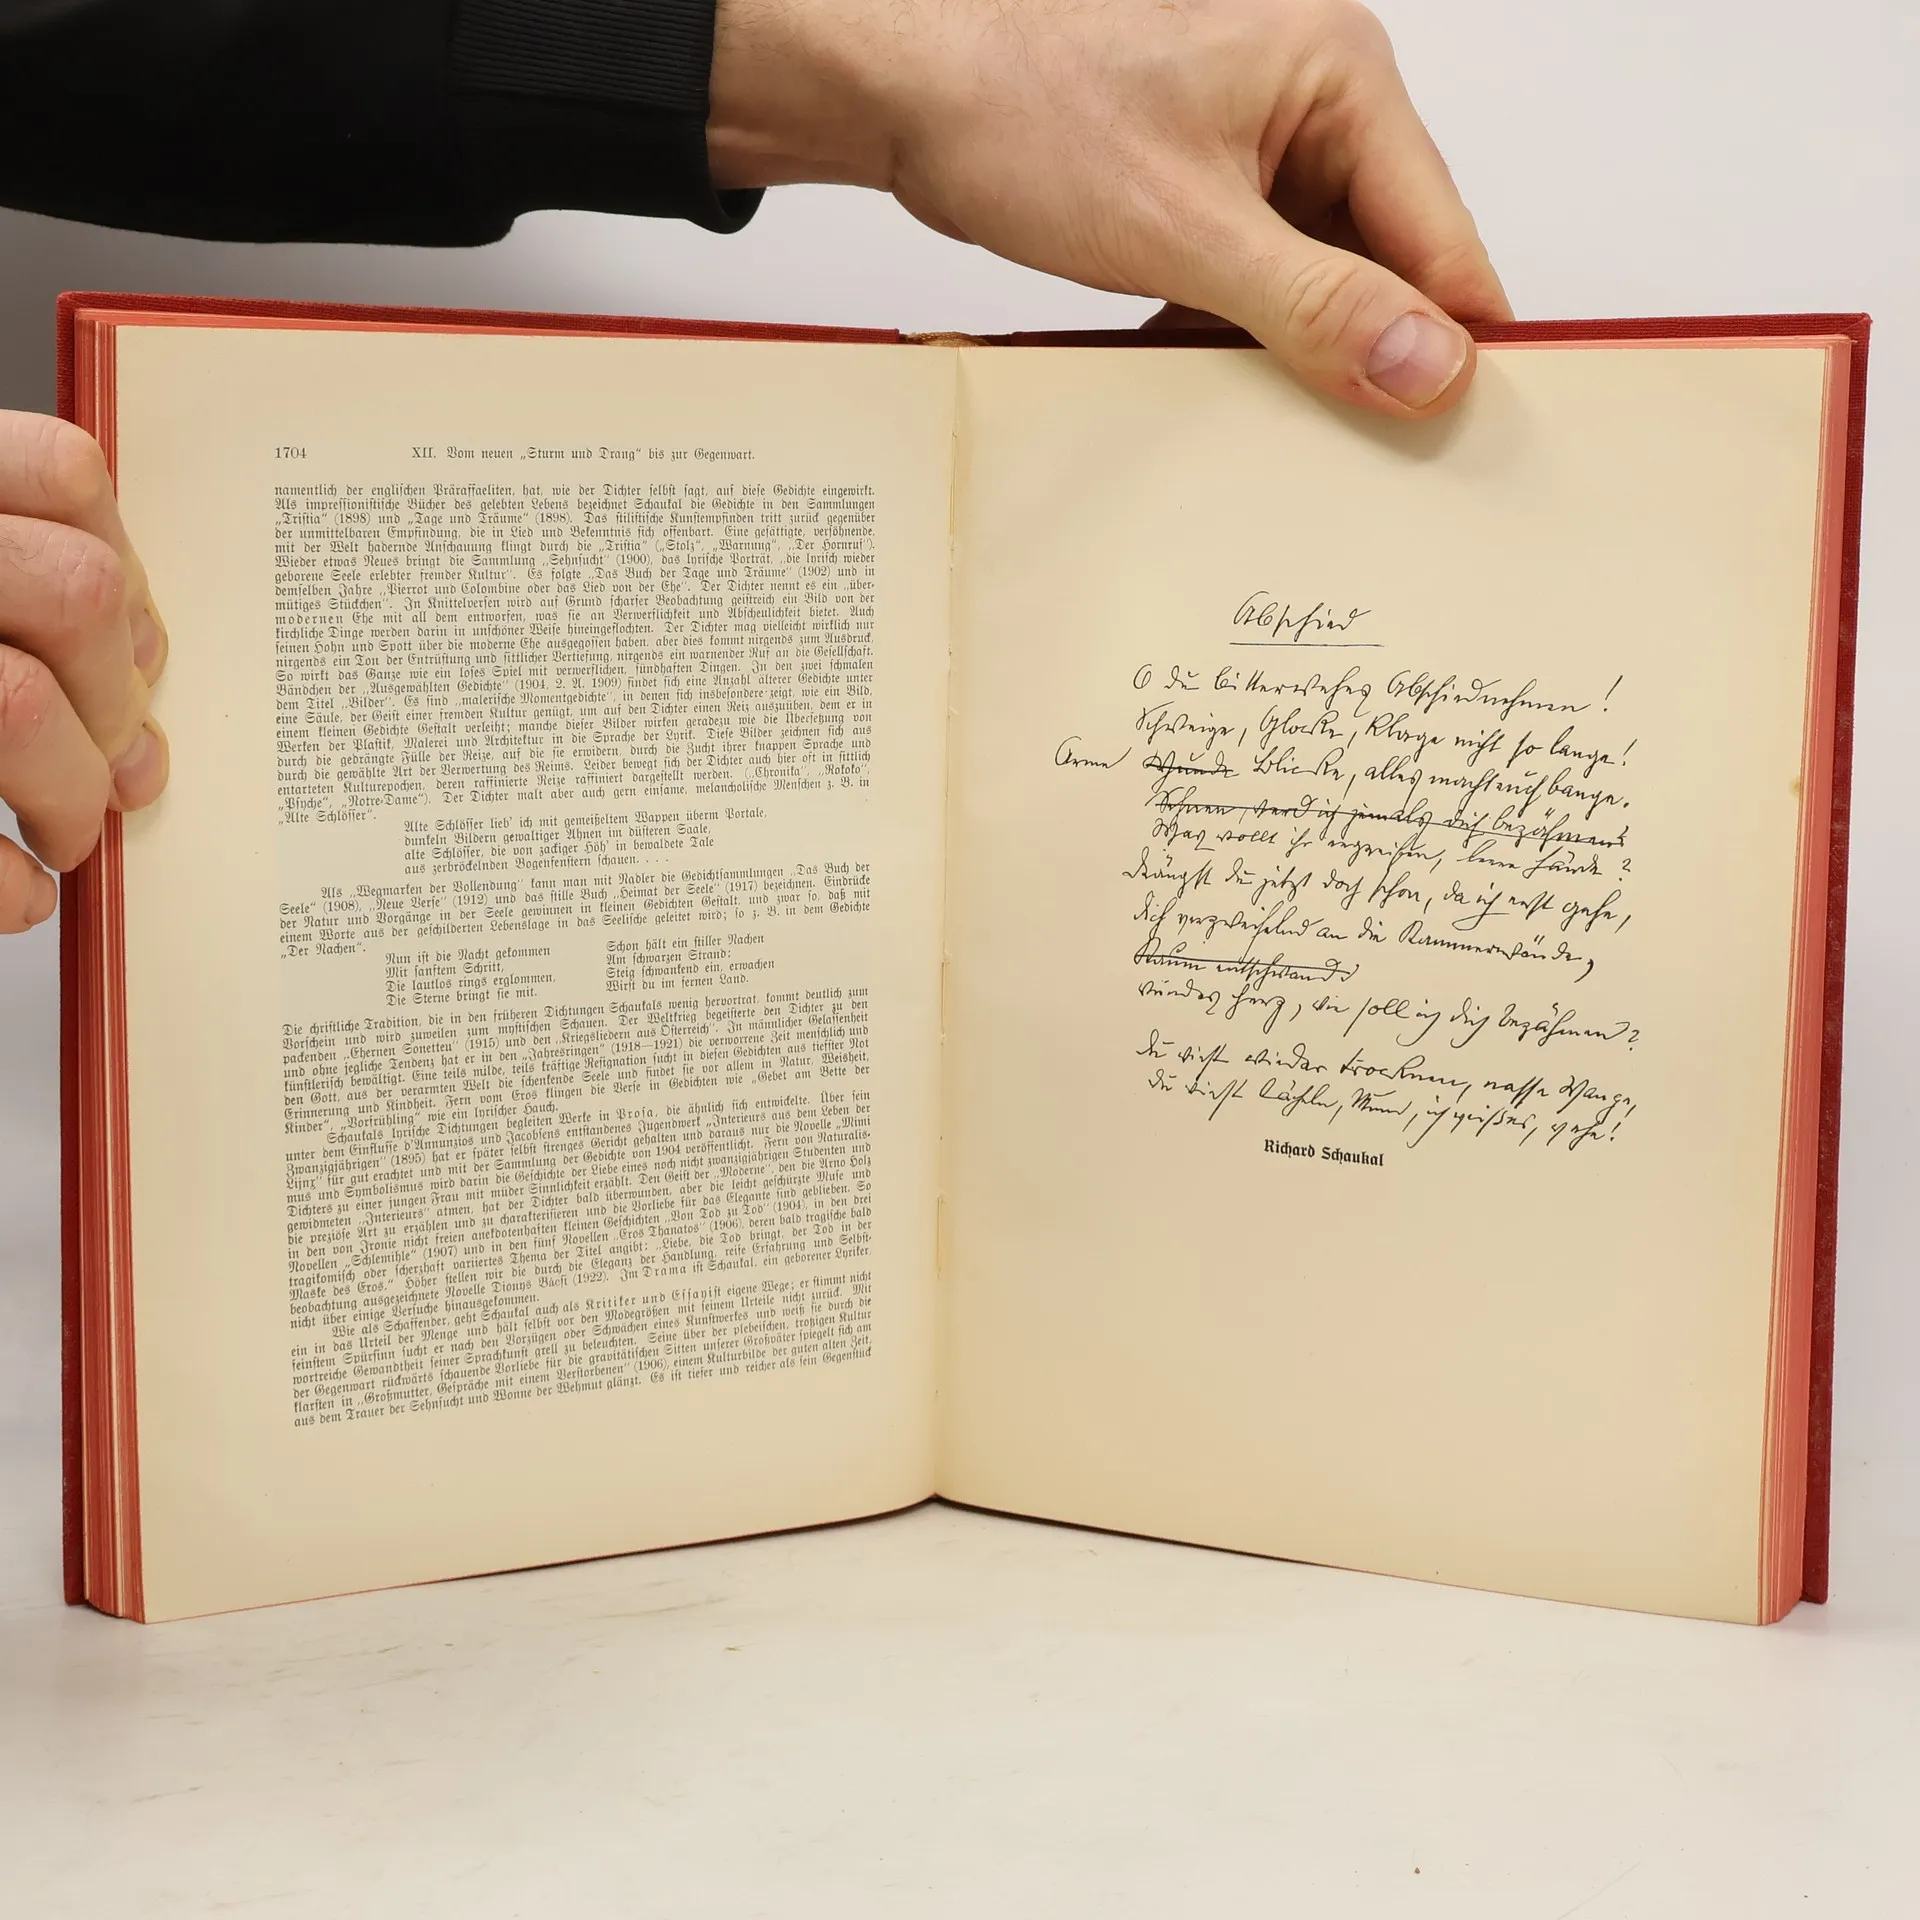 1704
XII. Vom neuen „Sturm und Drang“ bis zur Gegenwart.
namentlich der englischen Präraffaeliten, hat, wie der Dichter selbst sagt, auf diese Gedichte eingewirkt.
Als impressionistische Bücher des gelebten Lebens bezeichnet Schaukal die Gedichte in den Sammlungen
„Tristia“ (1898) und „Tage und Träume“ (1898). Das stilistische Kunstempfinden tritt zurück gegenüber
der unmittelbaren Empfindung, die in Lied und Bekenntnis sich offenbart. Eine gesättigte, versöhnende,
mit der Welt hadernde Anschauung klingt durch die „Tristia“ („Stolz“, „Warnung“, „Der Hornruf“).
Wieder etwas Neues bringt die Sammlung „Sehnsucht“ (1900), das lyrische Porträt, „die lyrisch wieder
geborene Seele erlebter fremder Kultur“. Es folgte „Das Buch der Tage und Träume“ (1902) und in
demselben Jahre „Pierrot und Colombine oder das Lied von der Ehe“. Der Dichter nennt es ein „über-
mütiges Stückchen“. In Knittelversen wird auf Grund scharfer Beobachtung geistreich ein Bild von der
modernen Ehe mit all dem entworfen, was sie an Verwerflichkeit und Abscheulichkeit bietet. Auch
kirchliche Dinge werden darin in unschöner Weise hineingeflochten. Der Dichter mag vielleicht wirklich nur
seinen Hohn und Spott über die moderne Ehe ausgegossen haben, aber dies kommt nirgends zum Ausdruck,
nirgends ein Ton der Entrüstung und sittlicher Vertiefung, nirgends ein warnender Ruf an die Gesellschaft.
So wirkt das Ganze wie ein loses Spiel mit verwerflichen, sündhaften Dingen. In den zwei schmalen
Bändchen der „Ausgewählten Gedichte“ (1904, 2. A. 1909) findet sich eine Anzahl älterer Gedichte unter
dem Titel „Bilder“. Es sind „malerische Momentgedichte“, in denen sich insbesondere zeigt, wie ein Bild,
eine Säule, der Geist einer fremden Kultur genügt, um auf den Dichter einen Reiz auszuüben, dem er in
einem kleinen Gedichte Gestalt verleiht; manche dieser Bilder wirken geradezu wie die Übersetzung von
Werken der Plastik, Malerei und Architektur in die Sprache der Lyrik. Diese Bilder zeichnen sich aus
durch die gedrängte Fülle der Reize, auf die sie erwidern, durch die Zucht ihrer knappen Sprache und
durch die gewählte Art der Verwertung des Reims. Leider bewegt sich der Dichter auch hier oft in sittlich
entarteten Kulturepochen, deren raffinierte Reize raffiniert dargestellt werden. („Chronika“, „Rokoko“,
„Psyche“, „Notre-Dame“). Der Dichter malt aber auch gern einsame, melancholische Menschen z. B. in
„Alte Schlösser“.
Alte Schlösser lieb' ich mit gemeißeltem Wappen überm Portale,
dunkeln Bildern gewaltiger Ahnen im düsteren Saale,
alte Schlösser, die von zackiger Höh' in bewaldete Tale
aus zerbröckelnden Bogenfenstern schauen. . . .
Als „Wegmarken der Vollendung“ kann man mit Nadler die Gedichtsammlungen „Das Buch der
Seele“ (1908), „Neue Verse“ (1912) und das stille Buch „Heimat der Seele“ (1917) bezeichnen. Eindrücke
der Natur und Vorgänge in der Seele gewinnen in kleinen Gedichten Gestalt, und zwar so, daß mit
einem Worte aus der geschilderten Lebenslage in das Seelische geleitet wird; so z. B. in dem Gedichte
„Der Nachen“.
Nun ist die Nacht gekommen
Mit sanftem Schritt,
Die lautlos rings erglommen,
Die Sterne bringt sie mit.
Schon hält ein stiller Nachen
Am schwarzen Strand;
Steig schwankend ein, erwachen
Wirst du im fernen Land.
Die christliche Tradition, die in den früheren Dichtungen Schaukals wenig hervortrat, kommt deutlich zum
Vorschein und wird zuweilen zum mystischen Schauen. Der Weltkrieg begeisterte den Dichter zu den
packenden „Ehernen Sonetten“ (1915) und den „Kriegsliedern aus Österreich“. In männlicher Gelassenheit
und ohne jegliche Tendenz hat er in den „Jahresringen“ (1918—1921) die verworrene Zeit menschlich und
künstlerisch bewältigt. Eine teils milde, teils kräftige Resignation sucht in diesen Gedichten aus tiefster Not
den Gott, aus der verarmten Welt die schenkende Seele und findet sie vor allem in Natur, Weisheit,
Erinnerung und Kindheit. Fern vom Eros klingen die Verse in Gedichten wie „Gebet am Bette der
Kinder“, „Vorfrühling“ wie ein lyrischer Hauch.
Schaukals lyrische Dichtungen begleiten Werke in Prosa, die ähnlich sich entwickelte. Über sein
unter dem Einflusse d'Annunzios und Jacobsens entstandenes Jugendwerk „Interieurs aus dem Leben der
Zwanzigjährigen“ (1895) hat er später selbst strenges Gericht gehalten und daraus nur die Novelle „Mimi
Lijnx“ für gut erachtet und mit der Sammlung der Gedichte von 1904 veröffentlicht. Fern von Naturalis-
mus und Symbolismus wird darin die Geschichte der Liebe eines noch nicht zwanzigjährigen Studenten und
Dichters zu einer jungen Frau mit müder Sinnlichkeit erzählt. Den Geist der „Moderne“, den die Arno Holz
gewidmeten „Interieurs“ atmen, hat der Dichter bald überwunden, aber die leicht geschürzte Muse und
die preziöse Art zu erzählen und zu charakterisieren und die Vorliebe für das Elegante sind geblieben. So
in den von Ironie nicht freien anekdotenhaften kleinen Geschichten „Von Tod zu Tod“ (1904), in den drei
Novellen „Schlemihle“ (1907) und in den fünf Novellen „Eros Thanatos“ (1906), deren bald tragische bald
tragikomisch oder scherzhaft variiertes Thema der Titel angibt: „Liebe, die Tod bringt, der Tod in der
Maske des Eros.“ Höher stellen wir die durch die Eleganz der Handlung, reife Erfahrung und Selbst-
beobachtung ausgezeichnete Novelle Dionys Bácsi (1922). Im Drama ist Schaukal, ein geborener Lyriker,
nicht über einige Versuche hinausgekommen.
Wie als Schaffender, geht Schaukal auch als Kritiker und Essayist eigene Wege; er stimmt nicht
ein in das Urteil der Menge und hält selbst vor den Modegrößen mit seinem Urteile nicht zurück. Mit
feinstem Spürsinn sucht er nach den Vorzügen oder Schwächen eines Kunstwerkes und weiß sie durch die
wortreiche Gewandtheit seiner Sprachkunst grell zu beleuchten. Seine über der plebeischen, trotzigen Kultur
der Gegenwart rückwärts schauende Vorliebe für die gravitätischen Sitten unserer Großväter spiegelt sich am
klarsten in „Großmutter, Gespräche mit einem Verstorbenen“ (1906), einem Kulturbilde der guten alten Zeit,
aus dem Trauer der Sehnsucht und Wonne der Wehmut glänzt. Es ist tiefer und reicher als sein Gegenstück
Abschied
O du bitterwehes Abschiednehmen!
Schweige, Glocke, klage nicht so lange!
Arme Wunde Blicke, alles macht euch bange.
Sehnen, werd ich jemals dich bezähmen?
Was wollt ihr ergreifen, leere Hände?
Drängst du jetzt doch schon, da ich erst gehe,
dich verzweifelnd an die Kammerwände,
Kaum entschwand
wundes Herz, wie soll ich dich bezähmen?
Du wirst wieder trocknen, nasse Wange,
du wirst lächeln, Mund, ich weiß es, gehe!
Richard Schaukal